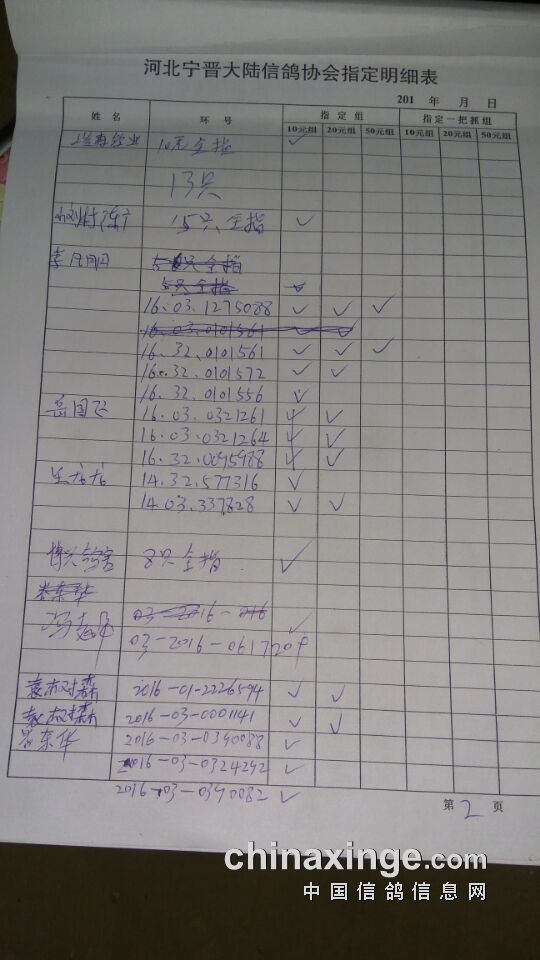 河北宁晋大陆信鸽协会指定明细表
201 年 月 日
姓名 环号 指定组 指定一把抓组
10元组 20元组 50元组 10元组 20元组 50元组
10元全指 ✓
13只
15只全指 ✓
李
5只全指
16.03.1275088 ✓ ✓ ✓
16.03.0101561
16.32.0101561 ✓ ✓ ✓
16.32.0101572 ✓ ✓
16.32.0101556 ✓
岳国飞 16.03.0321261 ✓ ✓
16.03.0321264 ✓ ✓
16.32.0095988 ✓ ✓
14.32.577316 ✓
14.03.337828 ✓ ✓
博兴 8只全指 ✓
冯 03-2016-016
03-2016-061720 ✓
袁树森 2016-01-2226594 ✓ ✓
袁树森 2016-03-0001141 ✓ ✓
东华 2016-03-0390088 ✓
2016-03-0324292 ✓
2016-03-0390082 ✓
第2页
chinaxinge.com
中国信鸽信息网